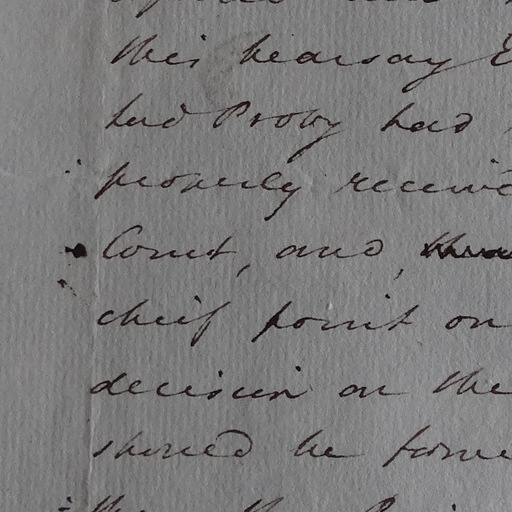 this hearsay E
had Proby had
properly receive
Court, and,
cheif point on
decision on the
should be forme